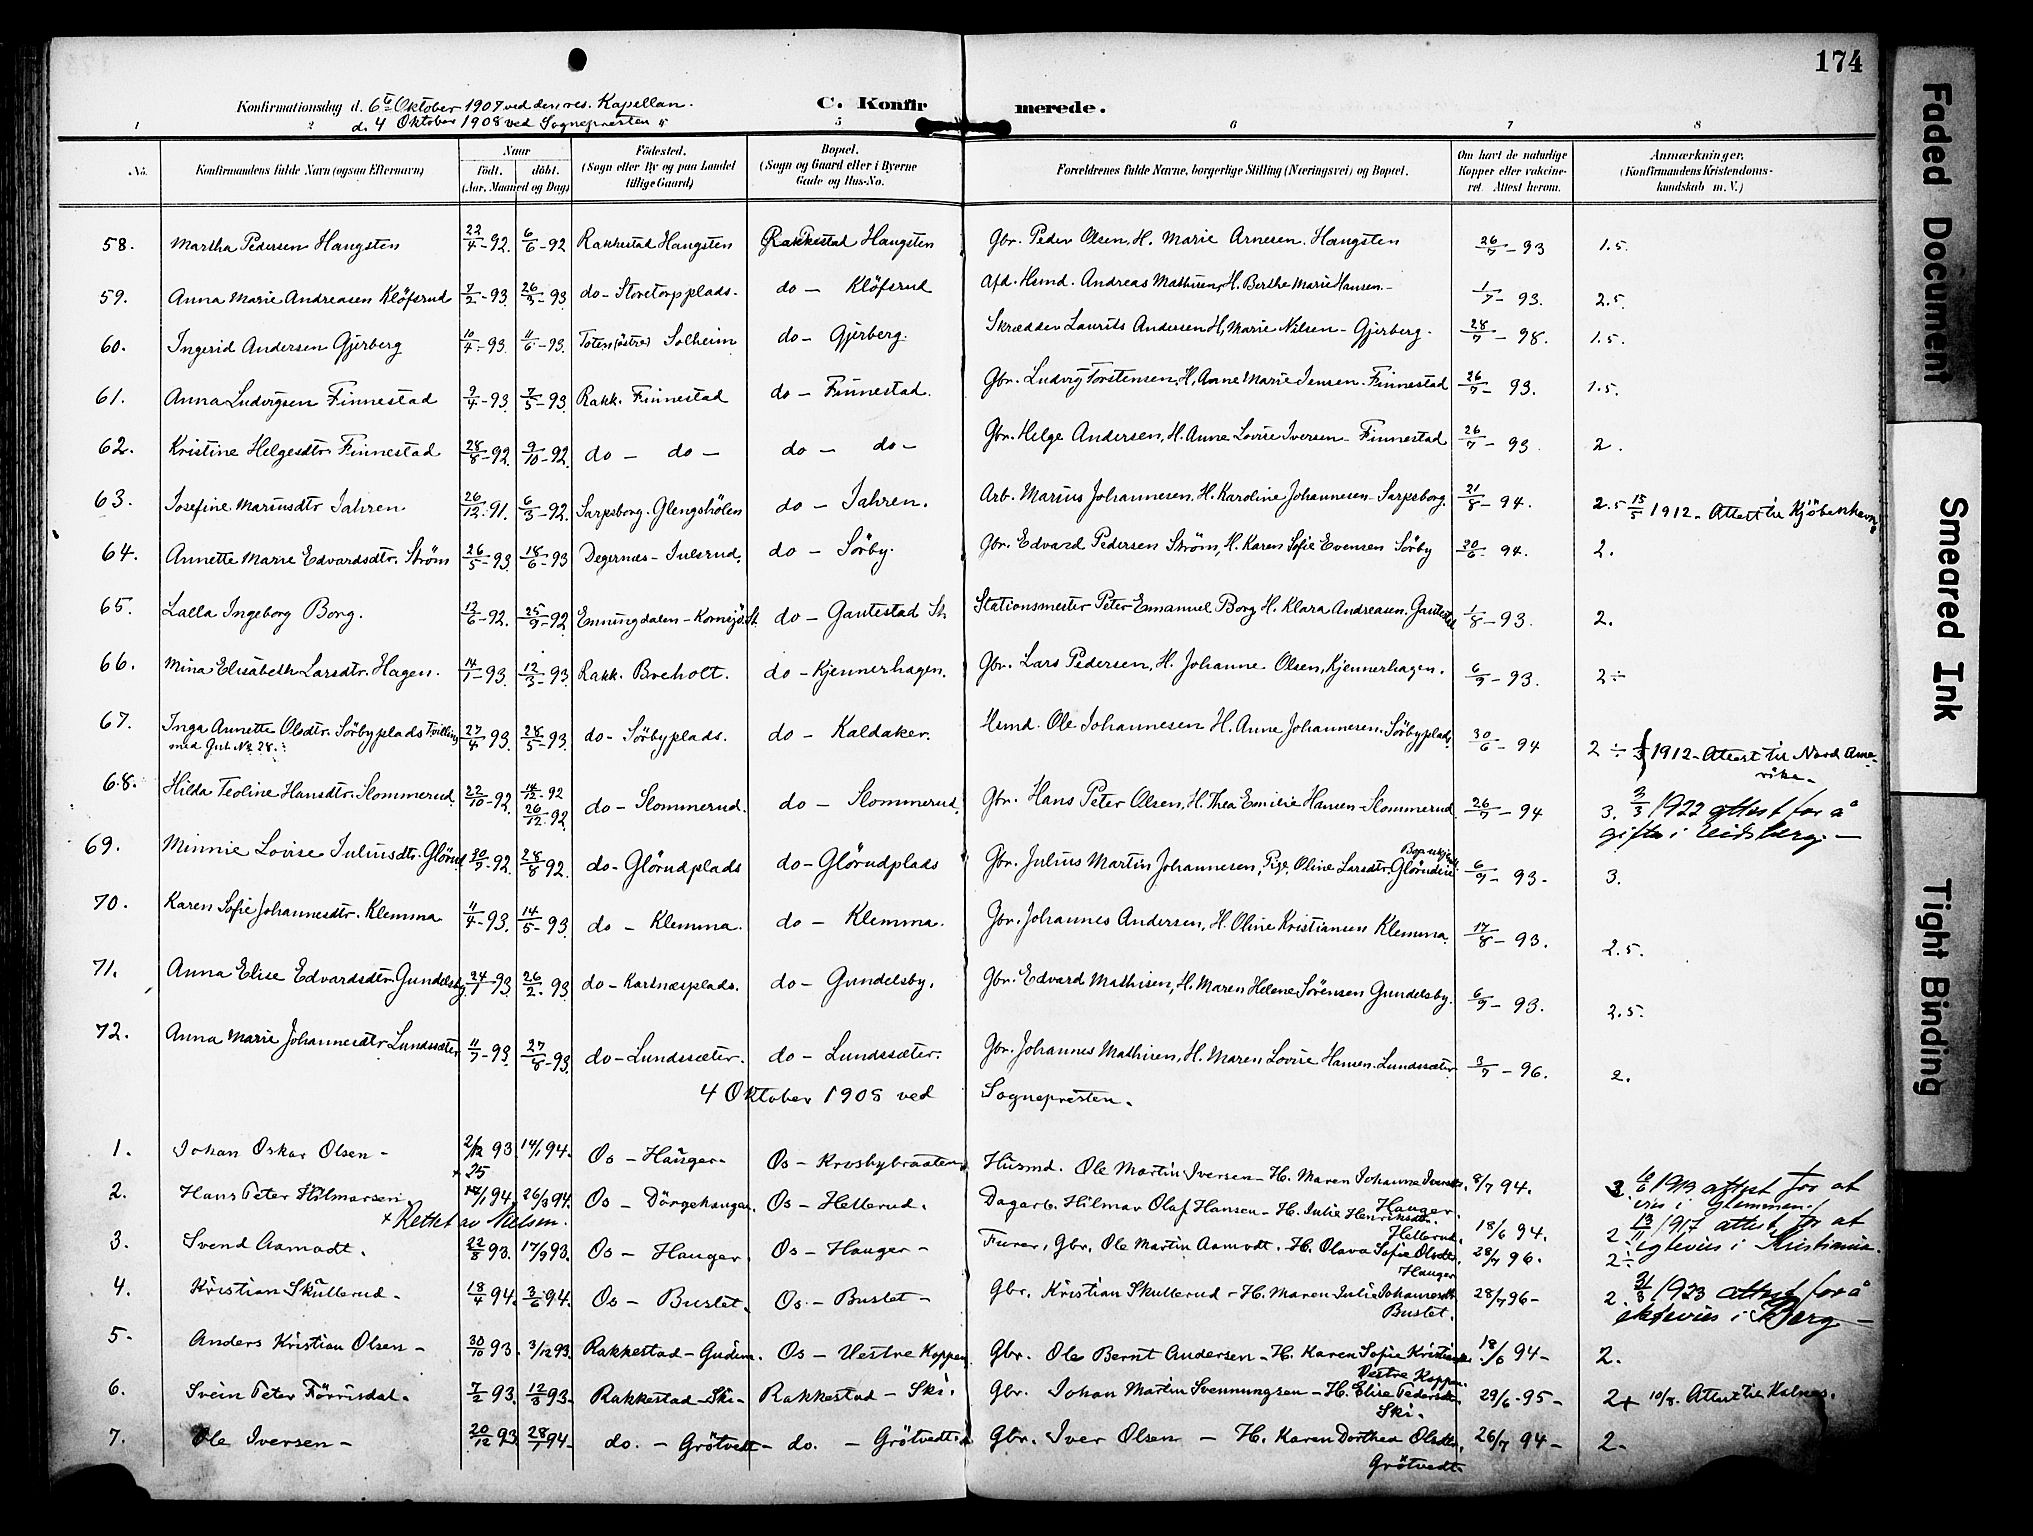 174
Konfirmationsdag d. 6te Oktober 1907 ved den res. Kapellan.
d. 4 Oktober 1908 ved Sognepresten
C. Konfirmerede.
1 2 5 6 7 8
No. Konfirmandens fulde Navn (ogsaa Efternavn) Naar Födt. döbt. (Aar, Maaned og Dag) Födested. (Sogn eller By og paa Landet tillige Gaard) Bopæl. (Sogn og Gaard eller i Byerne Gade og Hus-No. Forældrenes fulde Navne, borgerlige Stilling (Næringsvei) og Bopæl. Om havt de naturlige Kopper eller vakcineret. Attest herom. Anmærkninger. (Konfirmandens Kristendomskundskab m. V.)
58. Martha Pedersen Haugsten 22/4-92. 6/6-92 Rakkestad Haugsten Rakkestad Haugsten Gbr. Peder Olsen, H. Marie Arnesen. Haugsten 26/7-93 1.5.
59. Anna Marie Andreasen Klöfsrud 7/2-93. 26/3-93 do- Storetorpplads. do - Klöfsrud Afd. Hsmd. Andreas Mathisen, H. Berthe Marie Hansen.- 1/7-93. 2.5.
60. Ingerid Andersen Gjerberg 10/4-93 11/6-93. Toten (östre) Solheim do- Gjerberg. Skrædder Laurits Andersen H, Marie Nilsen- Gjerberg. 28/7-98. 1.5.
61. Anna Ludvigsen Finnestad 9/4-93. 7/5-93. Rakk. Finnestad do- Finnestad. Gbr. Ludvig Torstensen, H, Anne Marie Jensen. Finnestad 26/7-93. 1.5.
62. Kristine Helgesdtr. Finnestad 28/8-92. 9/10-92. do - do - do - do - Gbr. Helge Andersen, H. Anne Lovise Iversen- Finnestad 26/7-93 2.
63. Josefine Mariusdtr Jahren. 26/12-91. 6/3-92. Sarpsborg. Glengshölen do - Jahren. Arb. Marius Johannesen. H. Karoline Johannesen- Sarpsborg. 21/8-94. 2.5 15/5 1912. Attest til Kjöbenhavn
64. Annette Marie Edvardsdtr. Ström 26/5-93. 18/6-93 Degernæs- Julsrud. do - Sörby. Gbr. Edvard Pedersen Ström, H. Karen Sofie Evensen Sörby 20/6 94. 2.
65. Lalla Ingeborg Borg. 12/6-92. 25/9-92 Enningdalen- Kornsjö St. do - Gautestad St. Stationsmester Peter Emanuel Borg H. Klara Andreasen. Gautestad 1/8-93. 2.
66. Mina Elisabeth Larsdtr. Hagen. 14/1-93. 12/3-93. Rakk. Breholt. do - Kjennerhagen. Gbr. Lars Pedersen, H. Johanne Olsen, Kjennerhagen. 6/9-93. 2÷
67. Inga Annette Olsdtr. Sörbyplads Tvilling 27/4 93. 28/5-93. do- Sörbyplads. do - Kaldaker. Hsmd. Ole Johannesen H. Anne Johannesen. Sörbyplads 30/6-94 2÷ 1912- Attest til Nord Ame-
med Gut No 28. rika.
68. Hilda Teoline Hansdtr. Slommerud. 22/10-92. 18/12-92 26/12.92. do- Slommerud. do - Slommerud. Gbr. Hans Peter Olsen, H. Thea Emilie Hansen- Slommerud 26/7-94 3. 3/3 1922 attest for å
gifte i Eidsberg.-
69. Minnie Lovise Juliusdtr. Glörud 30/7-92. 28/8 92. do- Glörudplads do- Glörudplads Gbr. Julius Martin Johannesen, Pige, Oline Larsdtr. Glörudeie 6/9-93- 3.
70. Karen Sofie Johannesdtr. Klemma 11/4-93. 14/5-93. do - Klemma. do - Klemma. Gbr. Johannes Andersen, H. Oline Kristiansen Klemma. 17/8-93. 2.5.
71. Anna Elise Edvardsdtr. Gundelsby 24/1 93 26/2.93. do- Kartnæsplads. do- Gundelsby. Gbr. Edvard Mathisen, H. Maren Helene Sörensen Gundelsby. 6/9-93. 2.5.
72. Anna Marie Johannesdtr Lundssæter 11/7-93. 27/8-93. do- Lundssæter. do- Lundssæter. Gbr. Johannes Mathisen, H. Maren Lovise Hansen. Lundssæter 3/7-96. 2.
4 Oktober 1908 ved Sognepresten.
1. Johan Oskar Olsen- 2/12 93 14/1 94. Os - Hauger- Os- Krosbybraaten Husmd. Ole Martin Iversen- H. Maren Johanne Iversdtr. 8/7 94.
Hauger.
2. Hans Peter Hilmarsen. + 25 /1 94. 26/3 94. Os - Dörgehaugen. Os - Hellerud. Dagarb. Hilmar Olaf Hansen- H. Julie Henriksdtr. Hellerud. 18/6 94. 3. 6/6 1913 attest for at
vies i Glemmen.
+ Rettet av Nielsen.
3. Svend Aamodt. 22/8 93. 17/9 93. Os - Hauger. Os - Hauger- Furer, Gbr. Ole Martin Aamodt. H. Olava Sofie Olsdtr. 28/7 96. 2. 13/11 1917 attest for at
Hauger 2÷ egtevies i Kristiania.
4. Kristian Skullerud- 18/4 94. 3/6 94. Os - Bustet. Os - Bustet- Gbr. Kristian Skullerud - H. Maren Julie Johannesdtr. 28/7 96- 2. 21/3 1923 attest for å
Bustet. ektevies i Berg-
5. Anders Kristian Olsen- 30/10 93. 3/12 93. Rakkestad- Gudim. Os - Vestre Koppen. Gbr. Ole Bernt Andersen- H. Karen Sofie Kristiansdtr. 18/6 94- 2.
Vestre Koppen.
6. Svein Peter Förrisdal. 7/2 93. 12/3 93- Rakkestad-Ski- Rakkestad - Ski. Gbr. Johan Martin Svennungsen- H. Elise Pedersdtr. 29/6-95- 2+ 10/8. Attest til Kalnes.
Ski.
7. Ole Iversen- 20/12 93 28/1 94- do. - Grötvedt- do. - Grötvedt. Gbr. Iver Olsen - H. Karen Dorthea Olsdtr. 26/7 94- 2-
Grötvedt.
Faded Document
Smeared Ink
Tight Binding